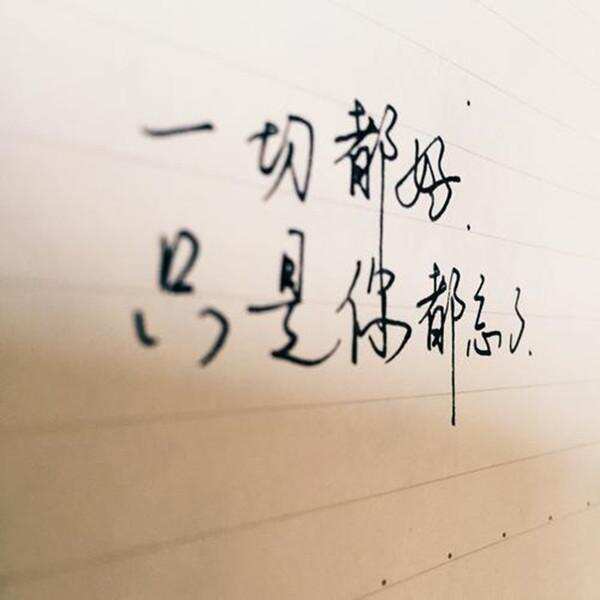 一切都好.
只是你都忘了.